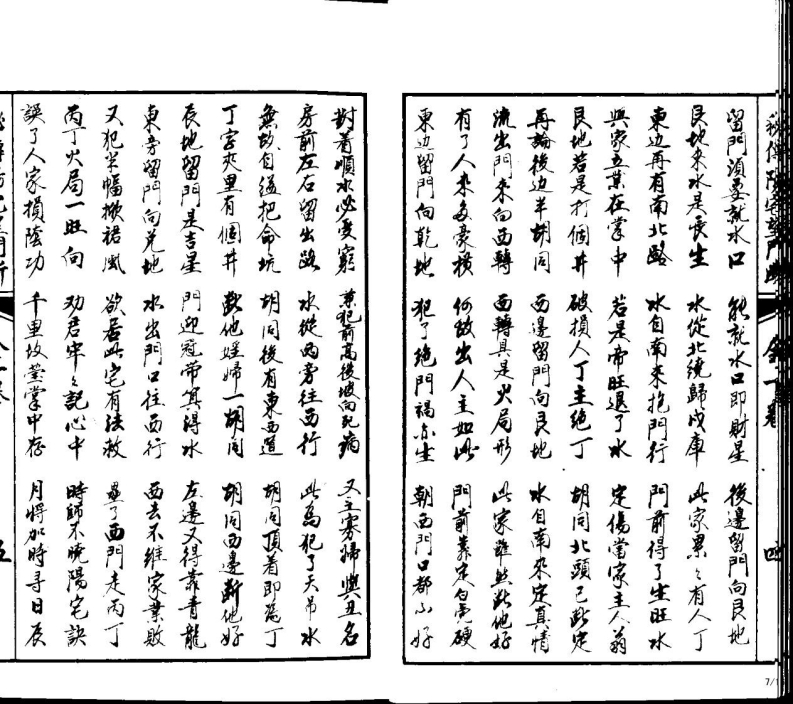 留門須要就水口 能就水口即財星 後邊留門向艮地
艮地來水是長生 水從北繞歸戌庫 此家累々有人丁
東边再有南北路 水自南來抱門行 門前得了生旺水
與家立業在掌中 若是帝旺退了水 定傷當家主人翁
艮地若是打個井 破損人丁主絶丁 胡同北頭已斷定
再論後边半胡同 西邊留門向艮地 水自南來定真情
流出門來向西轉 西轉具是火局形 此家雖然斷他好
有了人來多豪横 何故出人主如此 門前靠定白虎硬
東边留門向乾地 犯了绝門禍亦生 朝西門口都不好
對着順水必受窮 業犯前高後坡向死病 又主寡婦與丑名
房前左右留出路 水從兩旁往西行 此爲犯了天吊水
無故自縊把命坑 胡同後有東西道 胡同頂着即爲丁
丁字夾里有個井 斷他媱婦一胡同 胡同西邊斷他好
辰地留門是吉星 門迎冠帶寅得水 左邊又得靠青龍
東旁留門向兌地 水出門口往西行 西去不維家業敗
又犯半幅揪裙風 欲居此宅有法救 壘了西門走丙丁
丙丁火局一旺向 劝君牢々記心中 時師不曉陽宅訣
誤了人家損陰功 千里坟塋掌中存 月將加時尋日辰
五
7/1